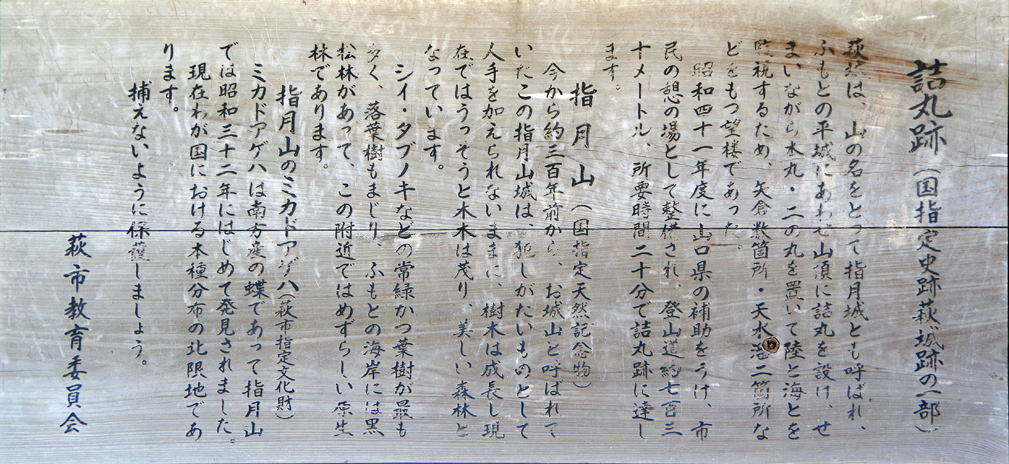 詰丸跡(国指定史跡萩城跡の一部)
萩城は、山の名をとって指月城とも呼ばれ、
ふもとの平城にあわせ山頂に詰丸を設け、せ
まいながら本丸・二の丸を置いて陸と海とを
監視するため、矢倉数箇所・天水溜二箇所な
どをもつ望楼であった。
昭和四十一年度に山口県の補助をうけ、市
民の憩の場として整備され、登山道約七百三
十メートル、所要時間二十分で詰丸跡に達し
ます。
指月山(国指定天然記念物)
今から約三百年前から、お城山と呼ばれて
いたこの指月山城は、犯しがたいものとして
人手を加えられないままに、樹木は成長し現
在ではうっそうと木々は茂り、美しい森林と
なっています。
シイ・タブノキなどの常緑かつ葉樹が最も
多く、落葉樹もまじり ふもとの海岸には黒
松林があって、この附近ではめずらしい原生
林であります。
指月山のミカドアゲハ(萩市指定文化財)
ミカドアゲハは南方産の蝶であって指月山
では昭和三十二年にはじめて発見されました。
現在わが国における本種分布の北限地であ
ります。
捕えないように保護しましょう。
萩市教育委員会